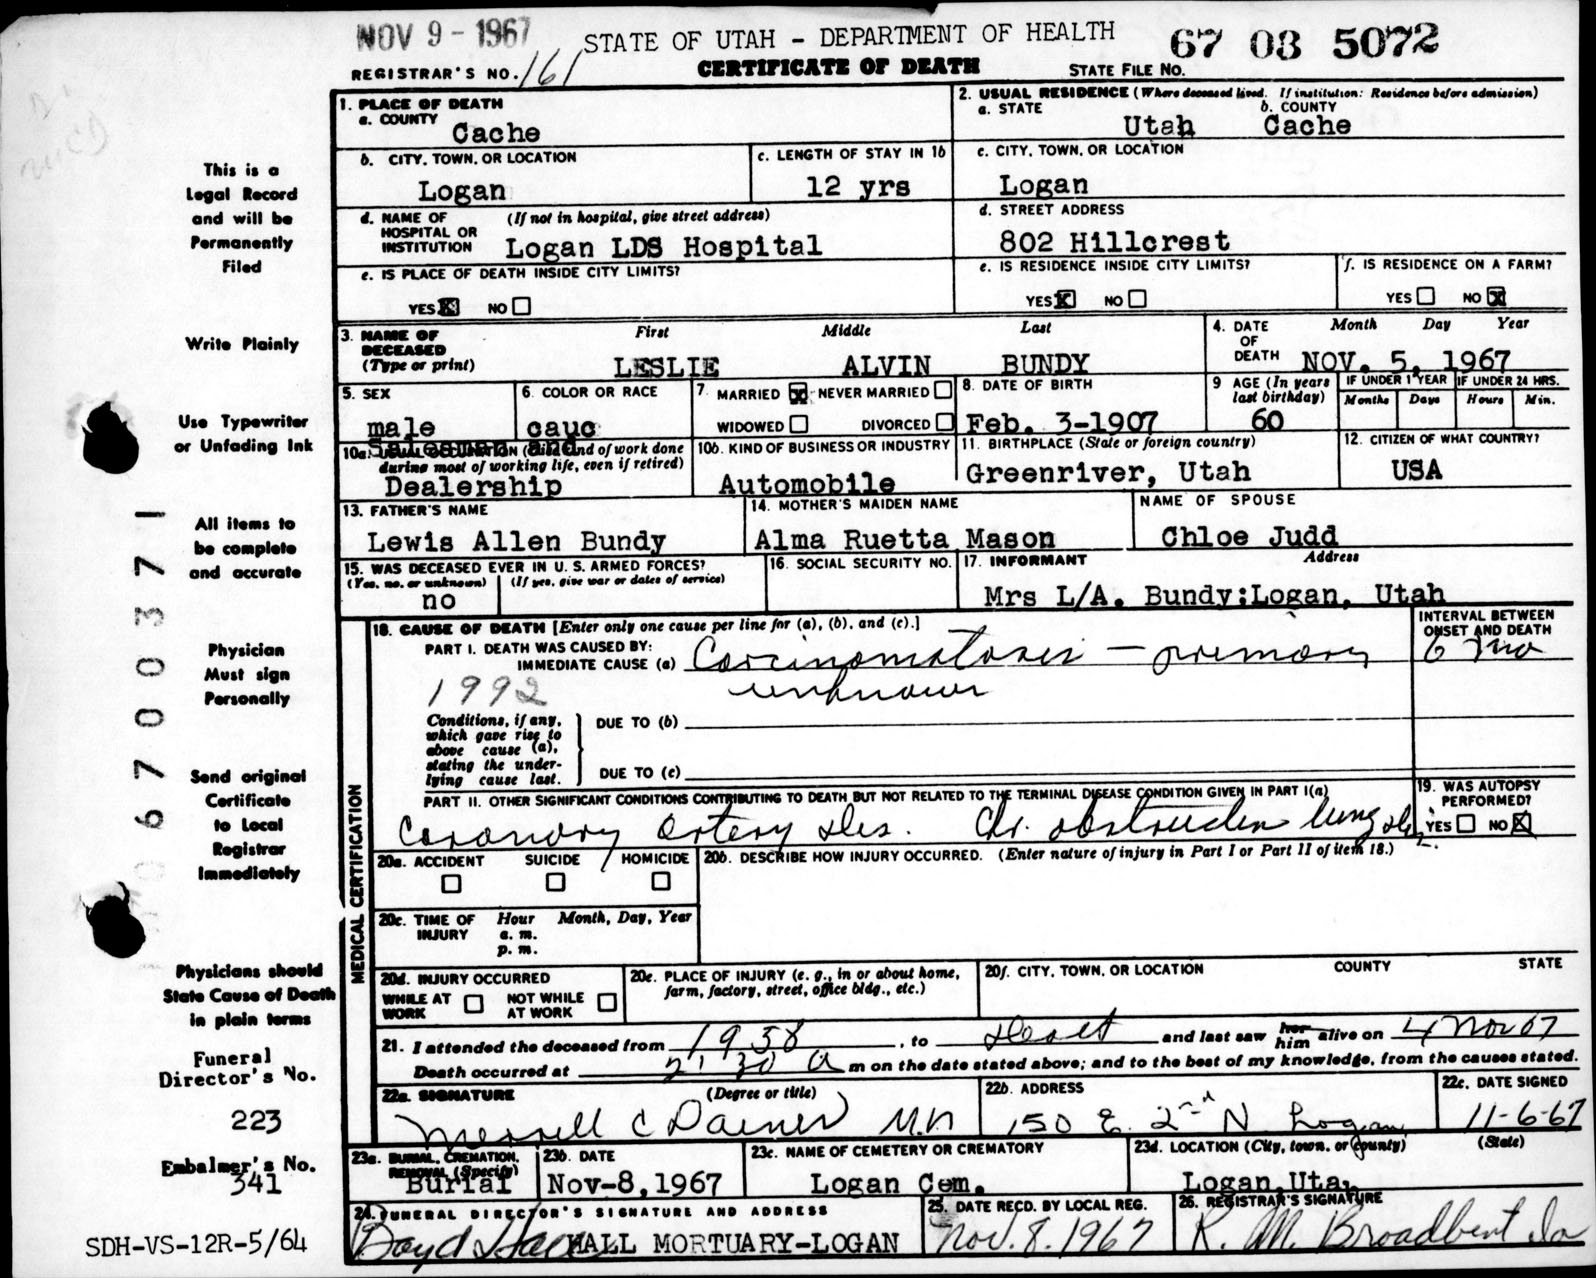 NOV 9 - 1967 STATE OF UTAH - DEPARTMENT OF HEALTH 67 03 5072
REGISTRAR'S NO. 161 CERTIFICATE OF DEATH STATE FILE NO.
1. PLACE OF DEATH
a. COUNTY
Cache
2. USUAL RESIDENCE (Where deceased lived. If institution: Residence before admission)
a. STATE b. COUNTY
Utah Cache
b. CITY, TOWN, OR LOCATION
Logan
c. LENGTH OF STAY IN 1b
12 yrs
c. CITY, TOWN, OR LOCATION
Logan
d. NAME OF HOSPITAL OR INSTITUTION (If not in hospital, give street address)
Logan LDS Hospital
d. STREET ADDRESS
802 Hillcrest
e. IS PLACE OF DEATH INSIDE CITY LIMITS?
YES X NO
e. IS RESIDENCE INSIDE CITY LIMITS?
YES X NO
f. IS RESIDENCE ON A FARM?
YES NO X
3. NAME OF DECEASED (Type or print)
First Middle Last
LESLIE ALVIN BUNDY
4. DATE OF DEATH Month Day Year
NOV. 5, 1967
5. SEX
male
6. COLOR OR RACE
cauc
7. MARRIED X NEVER MARRIED
WIDOWED DIVORCED
8. DATE OF BIRTH
Feb. 3-1907
9 AGE (In years last birthday)
60
IF UNDER 1 YEAR IF UNDER 24 HRS.
Months Days Hours Min.
10a. USUAL OCCUPATION (Give kind of work done during most of working life, even if retired)
Salesman and
Dealership
10b. KIND OF BUSINESS OR INDUSTRY
Automobile
11. BIRTHPLACE (State or foreign country)
Greenriver, Utah
12. CITIZEN OF WHAT COUNTRY?
USA
13. FATHER'S NAME
Lewis Allen Bundy
14. MOTHER'S MAIDEN NAME
Alma Ruetta Mason
NAME OF SPOUSE
Chloe Judd
15. WAS DECEASED EVER IN U. S. ARMED FORCES?
(Yes, no, or unknown) (If yes, give war or dates of service)
no
16. SOCIAL SECURITY NO.
17. INFORMANT Address
Mrs L/A. Bundy:Logan, Utah
18. CAUSE OF DEATH [Enter only one cause per line for (a), (b), and (c).]
INTERVAL BETWEEN ONSET AND DEATH
PART I. DEATH WAS CAUSED BY:
IMMEDIATE CAUSE (a) Carcinomatosis - primary 6 mo
1992 unknown
Conditions, if any, which gave rise to above cause (a), stating the underlying cause last.
DUE TO (b)
DUE TO (c)
PART II. OTHER SIGNIFICANT CONDITIONS CONTRIBUTING TO DEATH BUT NOT RELATED TO THE TERMINAL DISEASE CONDITION GIVEN IN PART I(a)
Coronary artery dis. Chr. obstructive lung dis.
19. WAS AUTOPSY PERFORMED?
YES NO X
20a. ACCIDENT SUICIDE HOMICIDE
20b. DESCRIBE HOW INJURY OCCURRED. (Enter nature of injury in Part I or Part II of item 18.)
20c. TIME OF INJURY Hour Month, Day, Year
a. m.
p. m.
20d. INJURY OCCURRED
WHILE AT WORK NOT WHILE AT WORK
20e. PLACE OF INJURY (e. g., in or about home, farm, factory, street, office bldg., etc.)
20f. CITY, TOWN, OR LOCATION COUNTY STATE
MEDICAL CERTIFICATION
21. I attended the deceased from 1958, to death and last saw her him alive on 4 Nov 67
Death occurred at 2:30 A m on the date stated above; and to the best of my knowledge, from the causes stated.
22a. SIGNATURE (Degree or title)
Merrell C Daines M.D
22b. ADDRESS
150 E. 2nd N. Logan
22c. DATE SIGNED
11-6-67
23a. BURIAL, CREMATION, REMOVAL (Specify)
Burial
23b. DATE
Nov-8,1967
23c. NAME OF CEMETERY OR CREMATORY
Logan Cem.
23d. LOCATION (City, town, or county) (State)
Logan,Utah
24. FUNERAL DIRECTOR'S SIGNATURE AND ADDRESS
Boyd Hall HALL MORTUARY-LOGAN
25. DATE RECD. BY LOCAL REG.
Nov. 8. 1967
26. REGISTRAR'S SIGNATURE
R. M. Broadbent
This is a
Legal Record
and will be
Permanently
Filed
Write Plainly
Use Typewriter
or Unfading Ink
All items to
be complete
and accurate
Physician
Must sign
Personally
Send original
Certificate
to Local
Registrar
Immediately
Physicians should
State Cause of Death
in plain terms
Funeral
Director's No.
223
Embalmer's No.
341
SDH-VS-12R-5/64
0 6 7 0 0 3 7 1